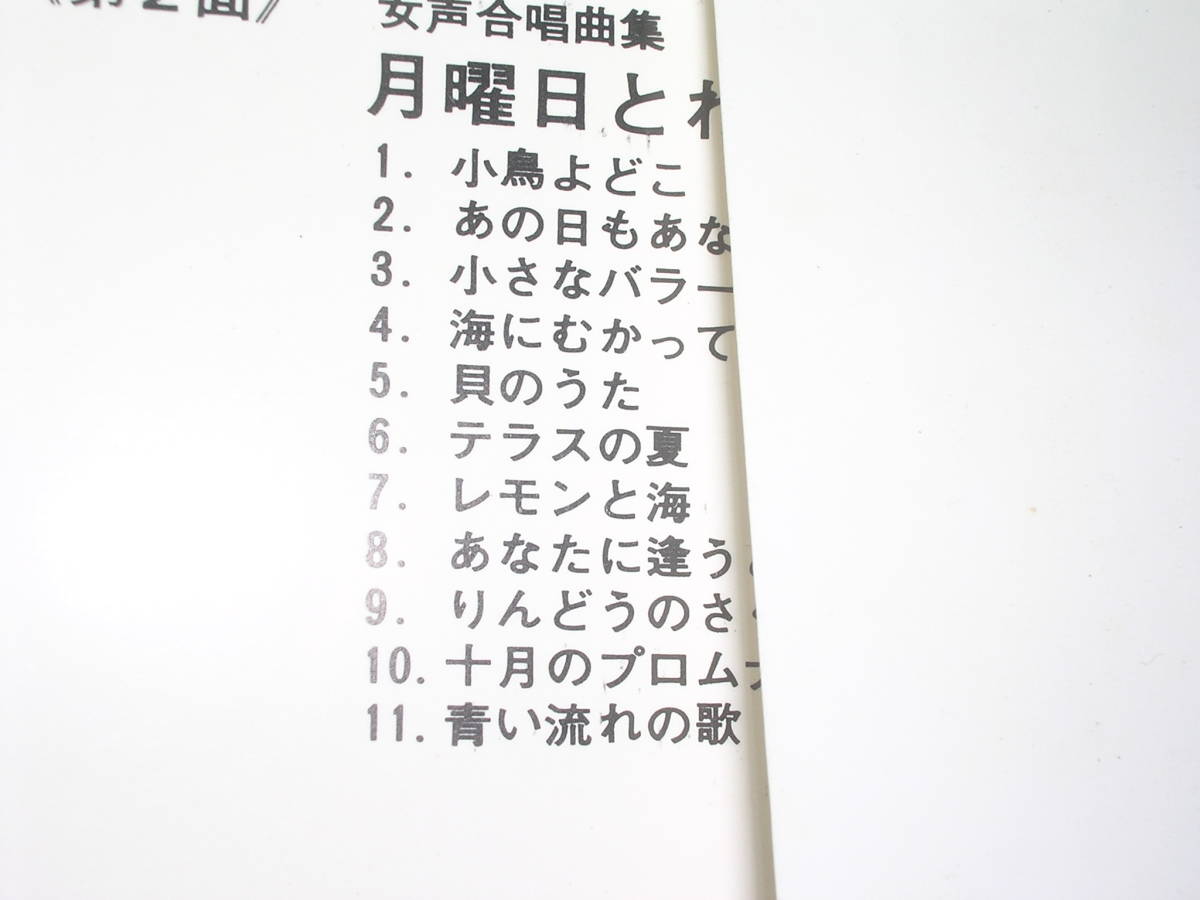 《第2面》
女声合唱曲集
月曜日とわ
1. 小鳥よどこ
2. あの日もあな
3. 小さなバラー
4. 海にむかって
5. 貝のうた
6. テラスの夏
7. レモンと海
8. あなたに逢う
9. りんどうのさ
10. 十月のプロム
11. 青い流れの歌